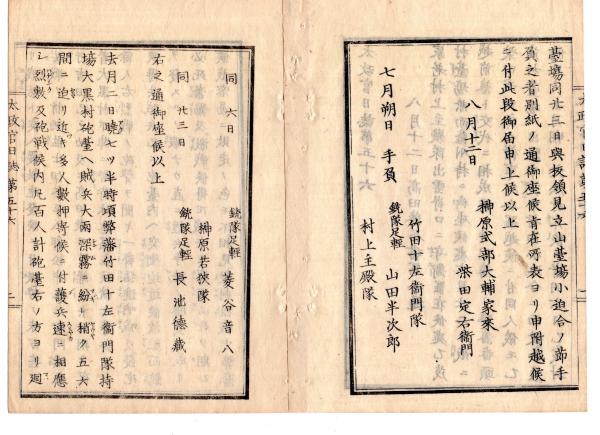 臺場同廿三日與板領見立山臺場小迫合ノ節手
負之者別紙ノ通御座候旨在所表ヨリ申附越候
ニ付此段御届申上候以上
八月十二日
榊原式部大輔家來
柴田定右衛門
七月朔日 手負
竹田十左衛門隊
銃隊足輕 山田半次郎
村上主殿隊
銃隊足輕 菱谷音八
同 六日
榊原若狹隊
銃隊足輕 長池德藏
同 廿三日
右之通御座候以上
去月二日曉七ツ半時頃弊藩竹田十左衛門隊持
場大黒村砲臺ヘ賊兵大雨深霧ニ紛レ稍久五六
間ニ迫リ近キ多人數押寄候ニ付護兵速ニ相應
シ烈敷及砲戰候内凡百人計砲臺右ノ方ヨリ廻
太政官日誌第五十六
二